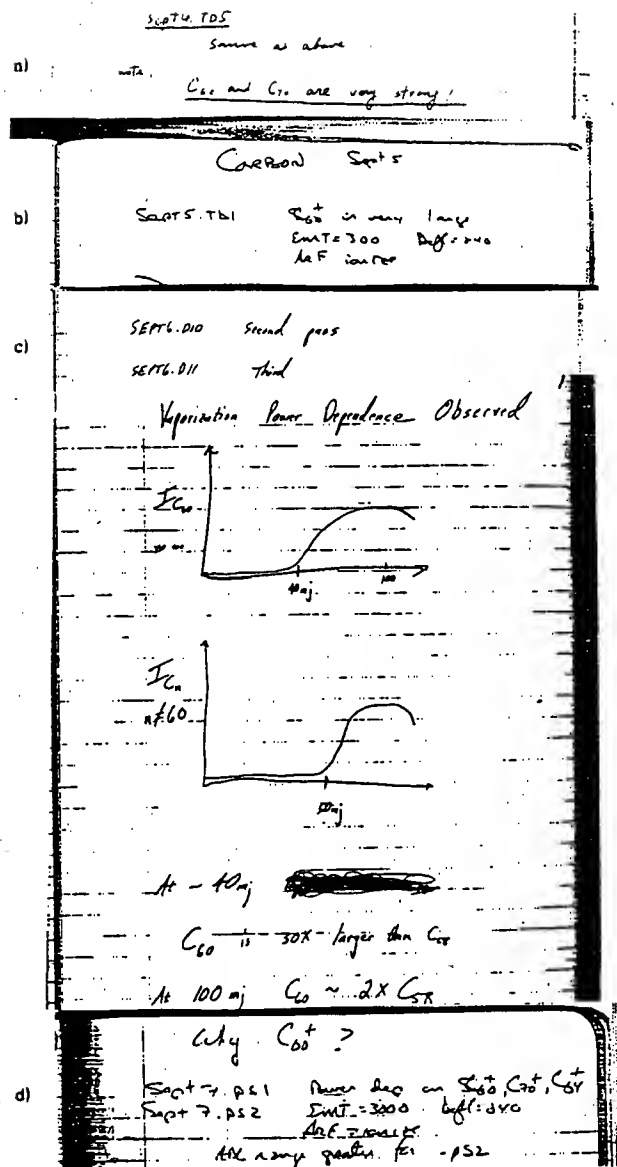 n)
SEPT4.TD5
Same as above
note.
C60 and C70 are very strong!
CARBON Sept 5
b)
Sept5.TD1 C60+ is very large
EMT=300 Defl=240
ArF
c)
SEPT6.D10 Second pass
SEPT6.D11 Third
Vaporization Power Dependence Observed
I C60
40mj
100
I Cn
n≠60
50mj
At ~40mj
C60 is 30X larger than C58
At 100 mj C60 ~ 2X C58
Why C60+ ?
d)
Sept 7.PS1 Power dep on C60+, C70+, C64+
Sept 7.PS2 EMT=3000 Defl=240
ArF
range greater for PS2